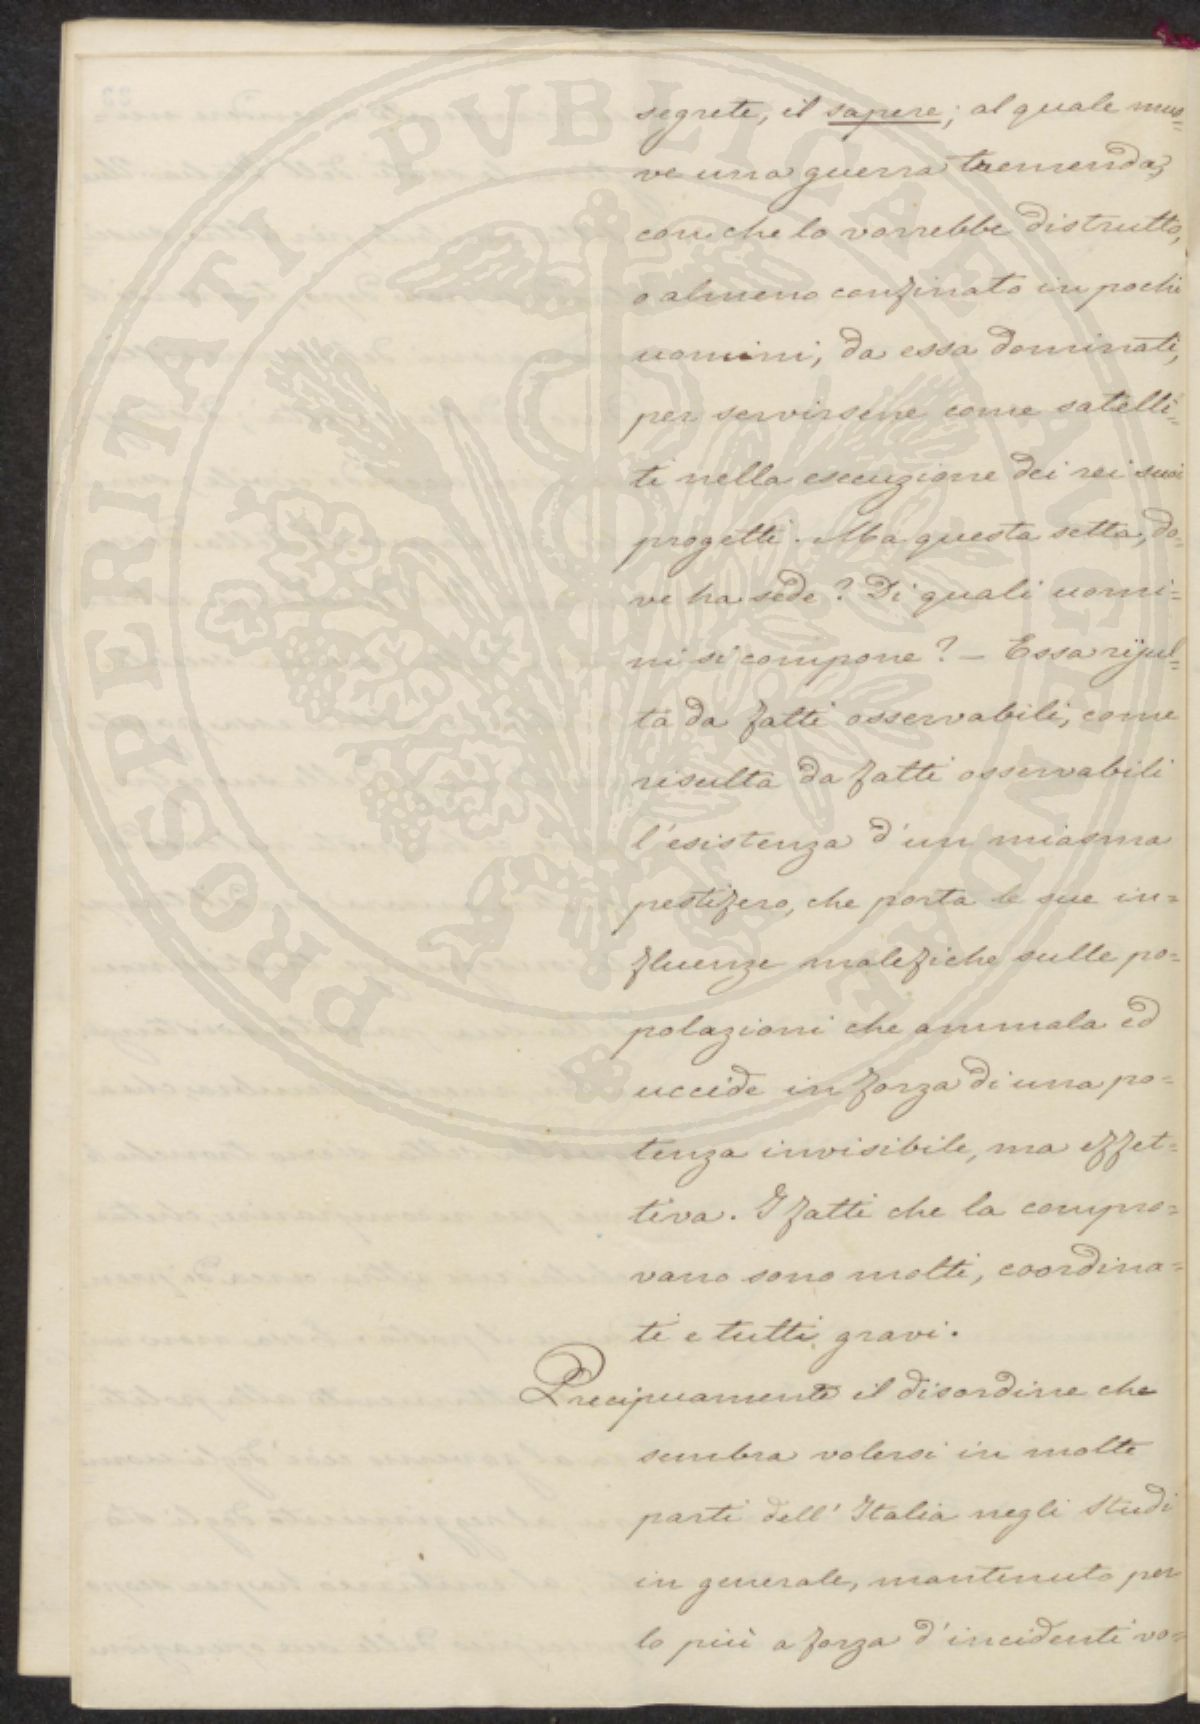 segrete, il sapere; al quale muo=
ve una guerra tremenda,
con che lo vorrebbe distrutto,
o almeno confinato in pochi
uomini, da essa dominati,
per servirsene come satelli=
ti nella esecuzione dei rei suoi
progetti. Ma questa setta, do=
ve ha sede? Di quali uomi=
ni si compone? — Essa risul=
ta da fatti osservabili, come
risulta da fatti osservabili
l'esistenza d'un miasma
pestifero, che porta le sue in=
fluenze malefiche sulle po=
polazioni che ammala ed
uccide in forza di una po=
tenza invisibile, ma effet=
tiva. I fatti che la compro=
vano sono molti, coordina=
ti e tutti gravi.
Precipuamente il disordine che
sembra volersi in molte
parti dell'Italia negli Studi
in generale, mantenuto per
lo più a forza d'incidenti vo=
PROSPERITATI PVBLICAE AVGENDAE